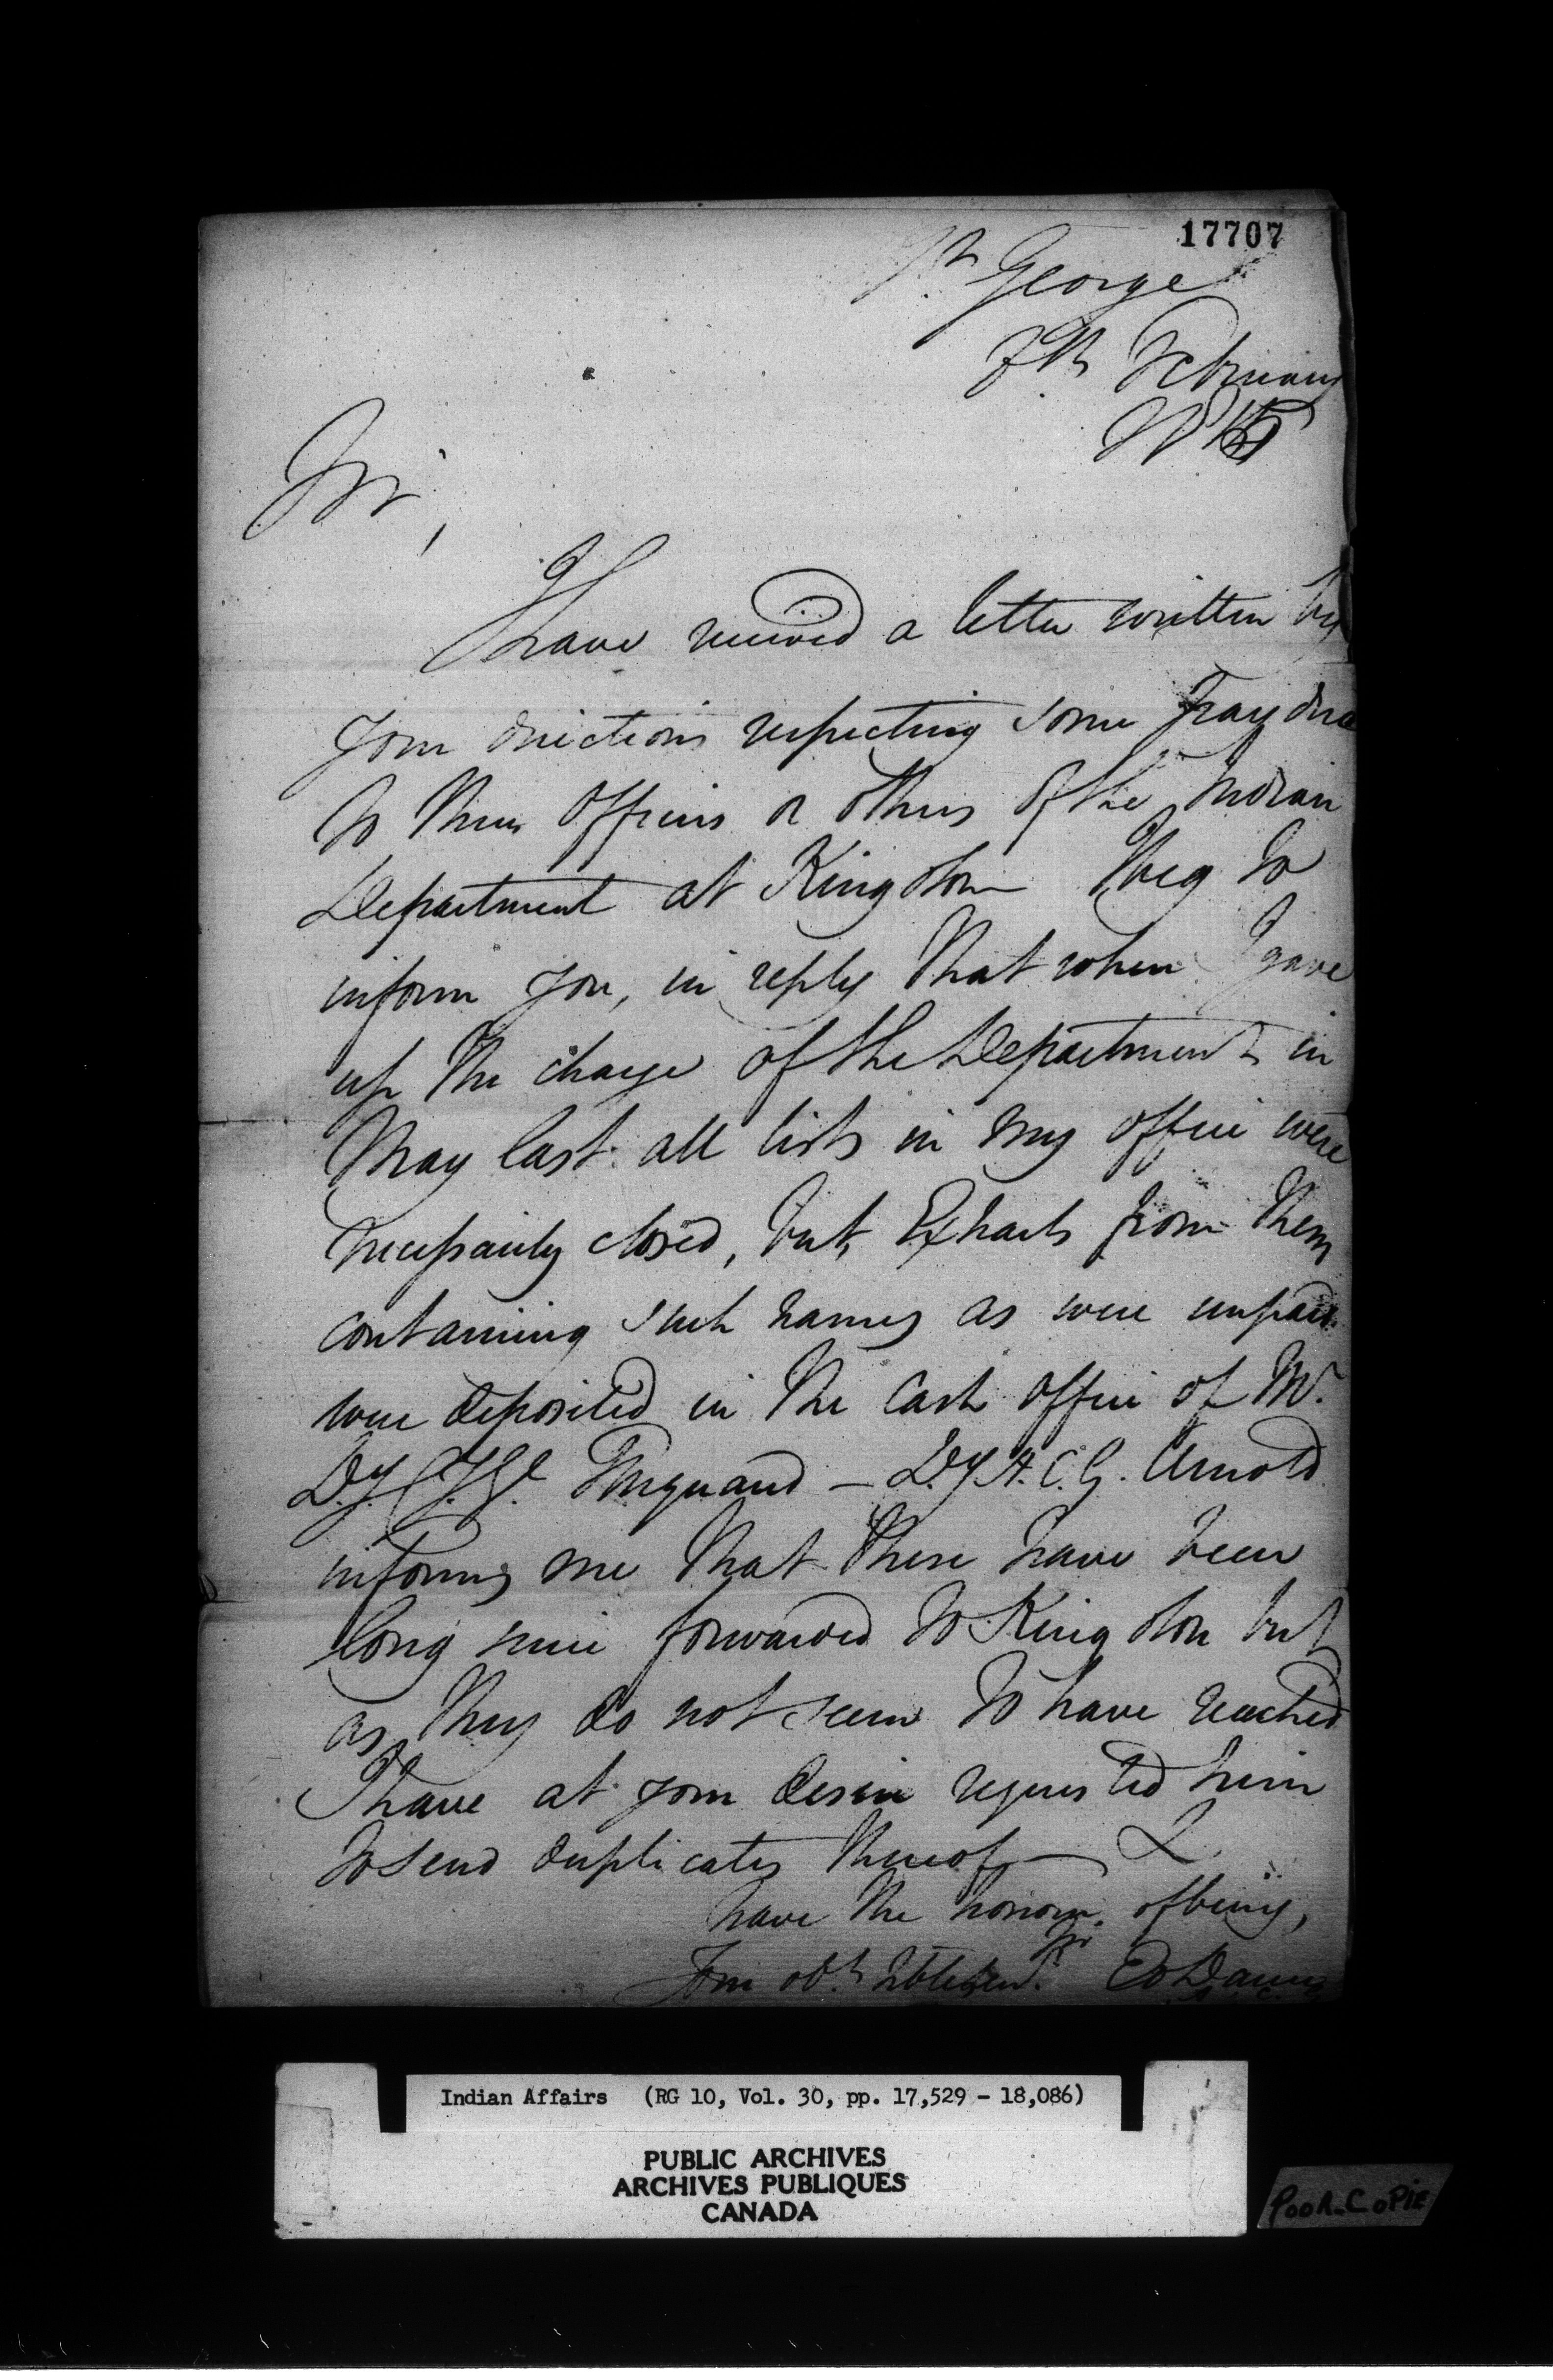 17707
Ft. George
7th February
1815
Sir,
I have received a letter written by
your directions respecting some pay due
to three Officers or others of the Indian
Department at Kingston I beg to
inform you, in reply that when I gave
up the charge of the Department in
May last all lists in my office were
necessarily closed, but, Extracts from them
containing such names as were unpaid
were deposited in the Cash office of Mr.
Dy. C. Gl. Turquand — Dy. A. C. G. Arnold
informs me that these have been
long since forwarded to Kingston but
as they do not seem to have reached
I have at your desire requested him
to send duplicates thereof — I
have the honour of being,
Sir
Your obt. Hble Servt.
Indian Affairs (RG 10, Vol. 30, pp. 17,529 - 18,086)
PUBLIC ARCHIVES
ARCHIVES PUBLIQUES
CANADA
POOR COPIE